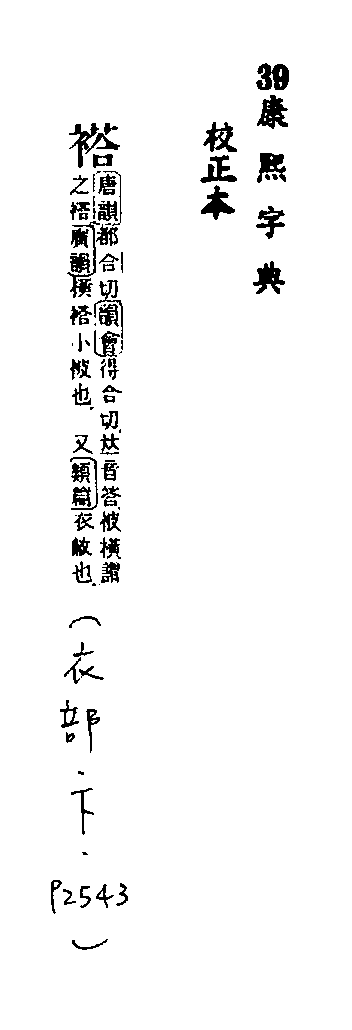 39康熙字典
校正本
褡
唐韻都合切韻會得合切𠀤音答被橫謂
之褡廣韻橫褡小被也又類篇衣敝也
（衣部．下．P2543）